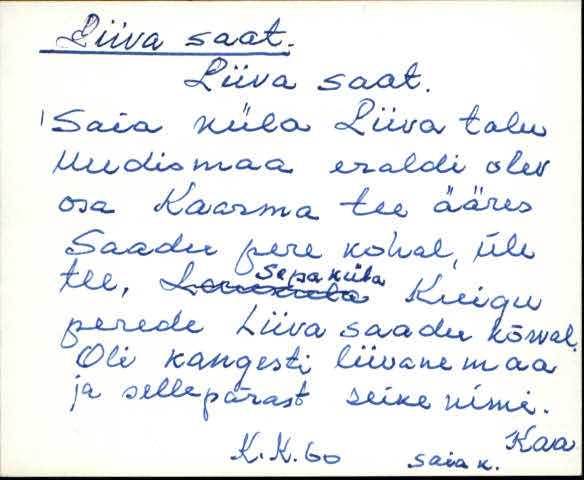 Liiva saat.
Liiva saat.
Saia küla Liiva talu
Uudismaa eraldi olev
osa Kaarma tee ääres
Saadu pere kohal, üle
tee, Sepaküla Kuigu
perede Liiva saadu kõrval.
Oli kangesti liivane maa
ja sellepärast seike nimi.
Kaa
K.K. 60 Saia k.